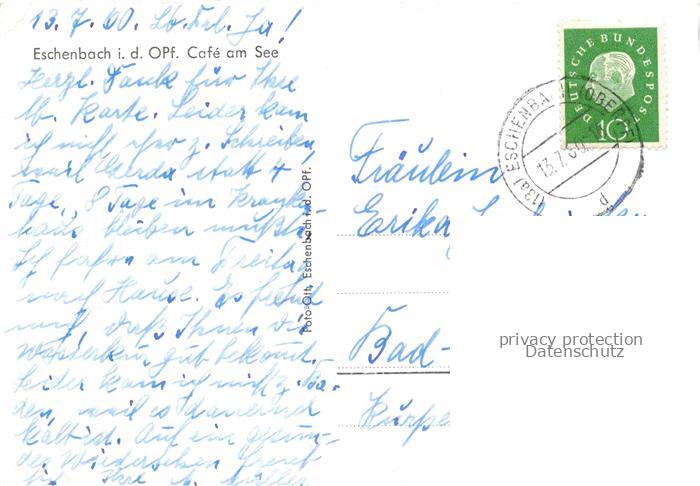 13.7.60. Lb. Frl. Ja!
Eschenbach i. d. OPf. Café am See
Herzl. Dank für Ihre
lb. Karte. Leider kam
ich nicht eher z. Schreiben,
weil Gerda statt 4
Tage, 8 Tage im Kranken-
haus bleiben mußte.
Ich fahre am Freitag
nach Hause. Es freut
mich, daß Ihnen die
Wasserkur gut bekomt.
Leider kam ich nicht z. Ba-
den, weil es dauernd
kalt ist. Auf ein gesun-
des Wiedersehen freut
sich Ihre A. Müller
Foto-Ott, Eschenbach i. d. OPf.
DEUTSCHE BUNDESPOST
10
(13a) ESCHENBACH (OBERPF)
13.7.60
Fräulein
Erika
Bad-
Kurpe
privacy protection
Datenschutz